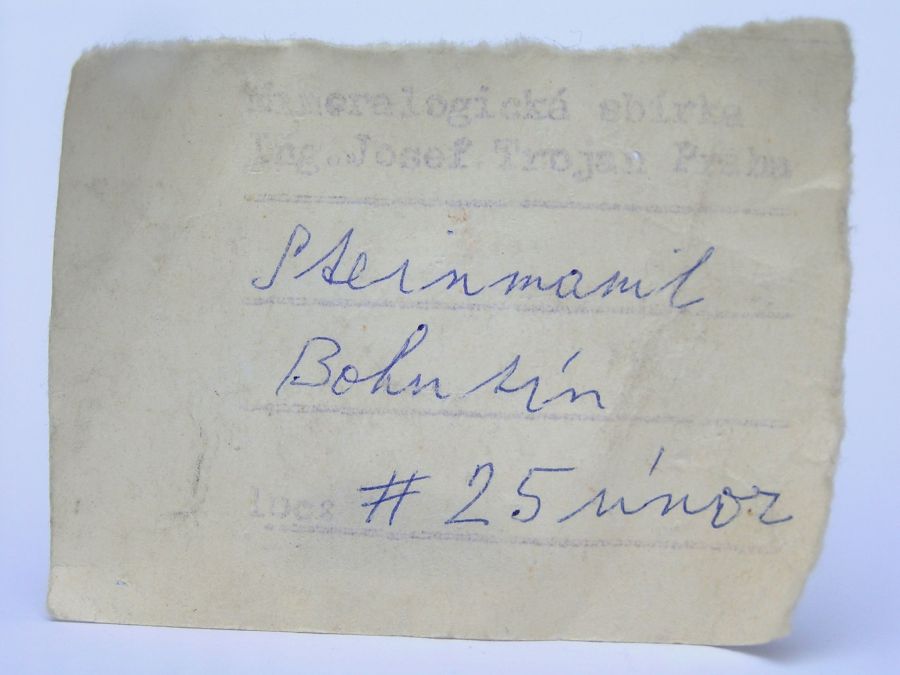 Mineralogická sbírka
Ing. Josef Trojan Praha
Steinmanil
Bohutín
# 25 únor